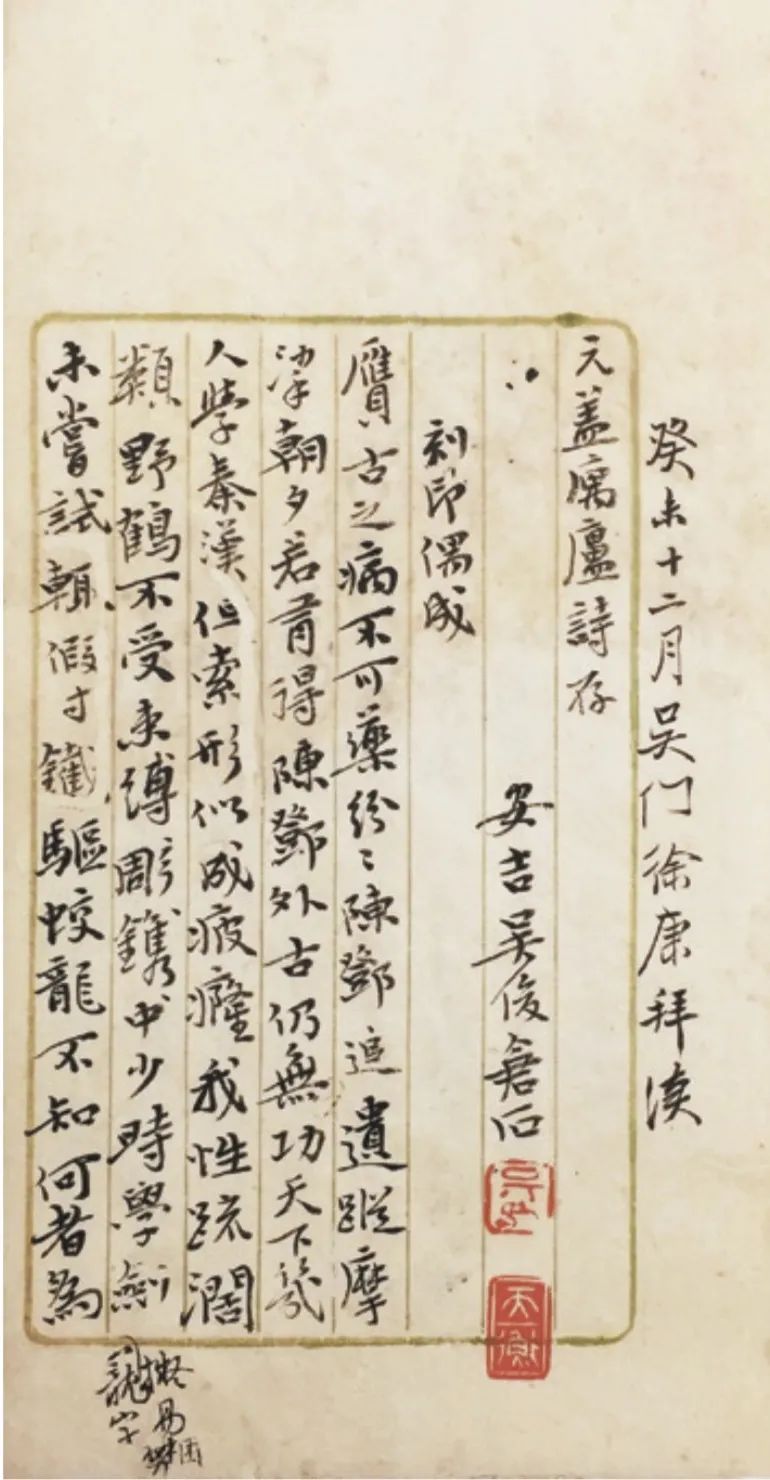 癸未十二月吴门徐康拜读
元盖寓廬詩存
安吉吴俊倉石
天衡
刻印偶成
贋古之病不可藥紛〻陳鄧追遺蹤摩
挲朝夕若有得陳鄧外古仍無功天下幾
人學秦漢但索形似成疲癃我性疏闊
類野鶴不受束縛彫鐫中少時學劍
未嘗試輒假寸鐵驅蛟龍不知何者為
擬易
字